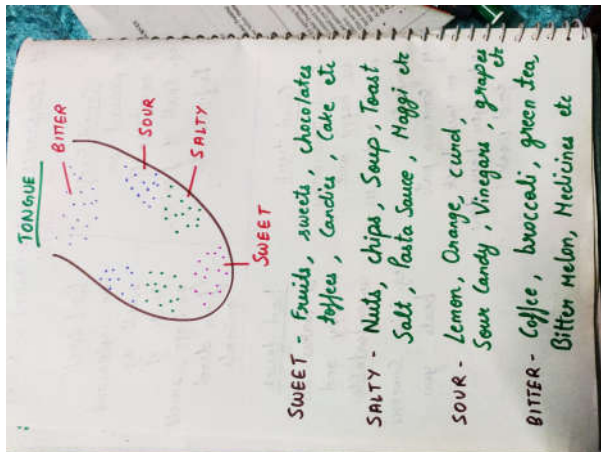 TONGUE
BITTER
SOUR
SALTY
SWEET
SWEET - Fruits, sweets, chocolates
toffees, Candies, Cake etc
SALTY - Nuts, chips, Soup, Toast
Salt, Pasta Sauce, Maggi etc
SOUR - Lemon, Orange, curd,
Sour Candy, Vinegars, grapes etc
BITTER - Coffee, broccoli, green tea,
Bitter Melon, Medicines etc